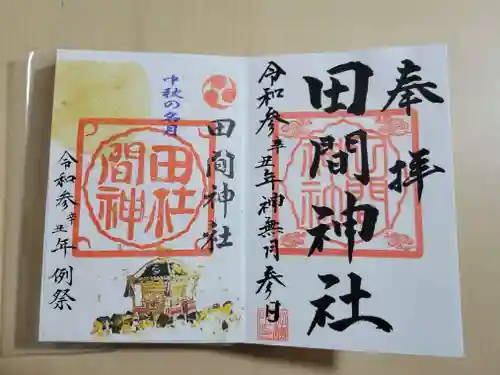 奉拝
田間神社
令和参辛丑年神無月参日
田間神社
中秋の名月
田間神社
令和参辛丑年例祭